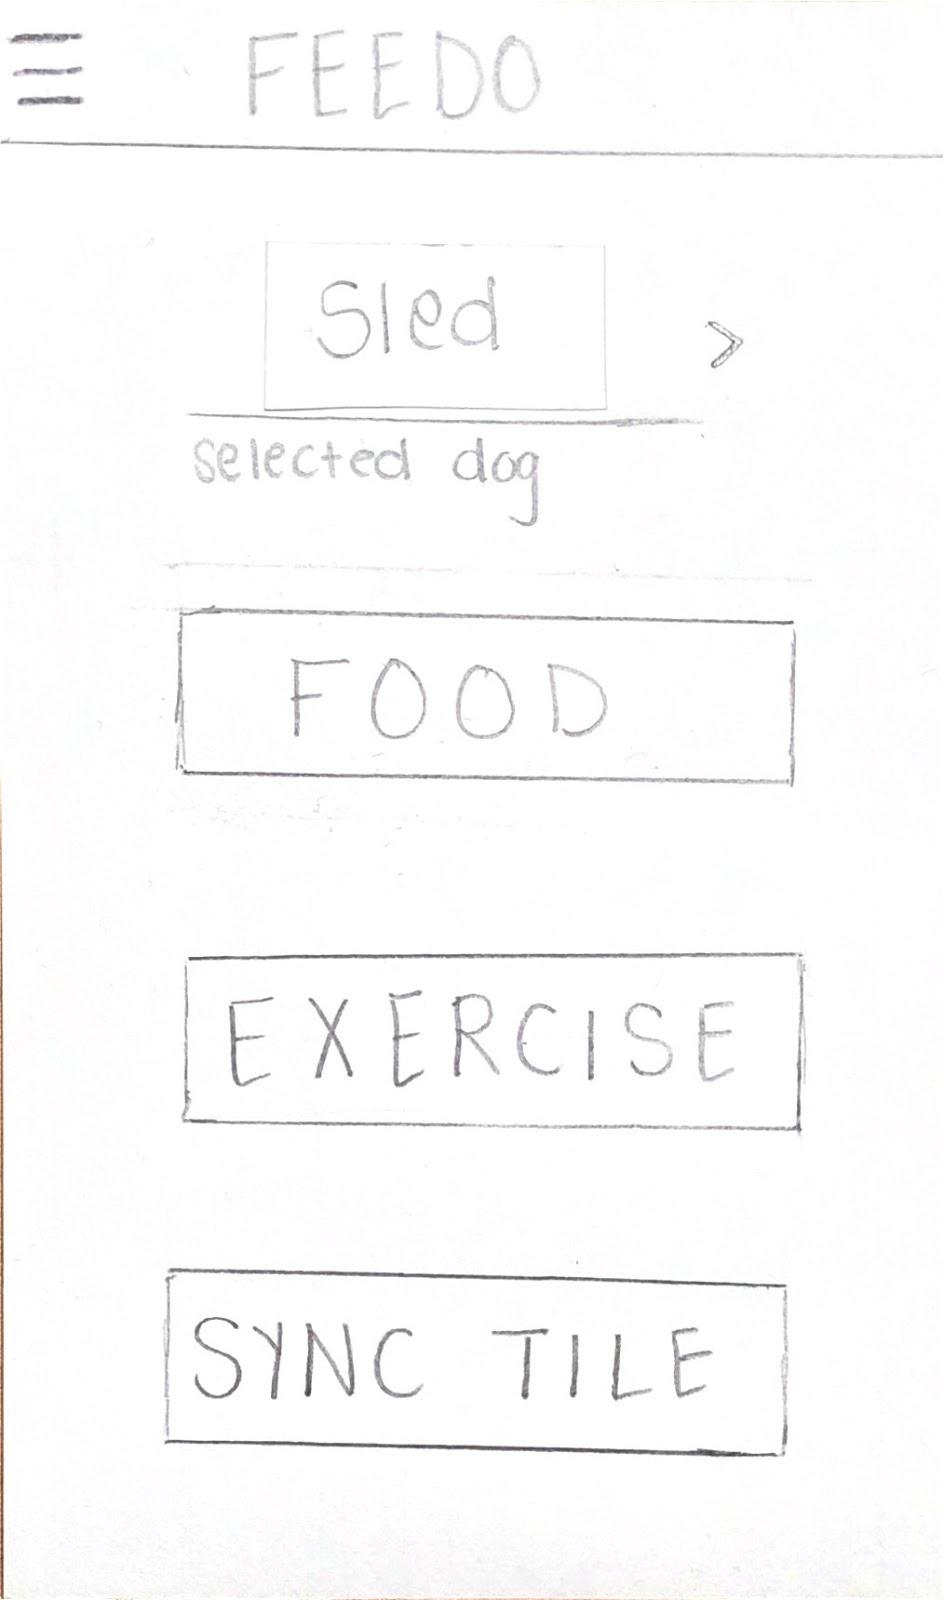 FEEDO
Sled
>
selected dog
FOOD
EXERCISE
SYNC TILE